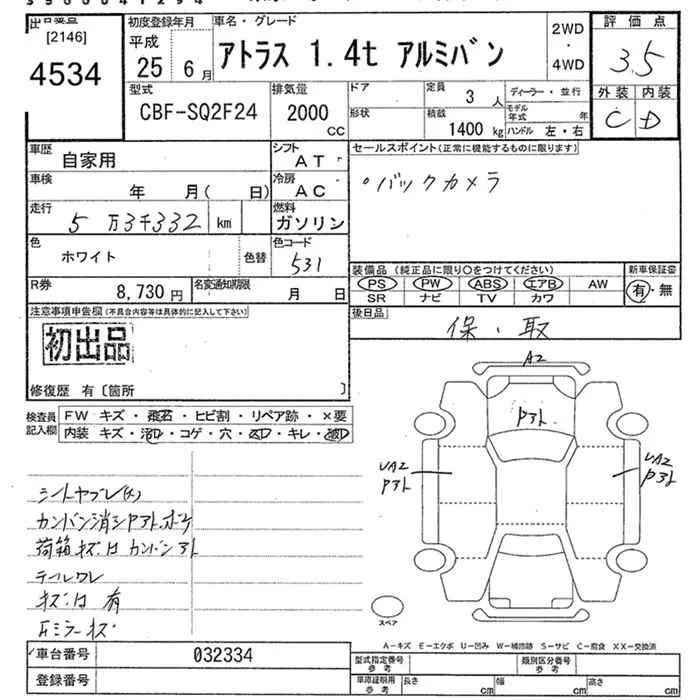 [2146]
4534
初度登録年月
平成
25 6月
車名・グレード
アトラス 1.4t アルミバン
2WD
・
4WD
評価点
3.5
外装 内装
C D
型式
CBF-SQ2F24
排気量
2000
CC
ドア
形状
定員
3人
積載
1400 kg
ディーラー・並行
モデル年式 年
ハンドル 左・右
車歴
自家用
シフト
AT
セールスポイント(正常に機能するものに限ります)
・バックカメラ
車検
年 月( 日)
冷房
AC
走行
5万3千332 km
燃料
ガソリン
色
ホワイト
色替
色コード
531
装備品 (純正品に限り○をつけてください)
PS PW ABS エアB AW
SR ナビ TV カワ
新車保証書
有・無
R券
8,730円
名変通知期限
月 日
後日品
保・取
注意事項申告欄(不具合内容等は具体的に記入して下さい)
初出品
修復歴 有〔箇所 〕
検査員記入欄
FW キズ・飛石・ヒビ割・リペア跡・×要
内装 キズ・汚D・コゲ・穴・凹D・キレ・破D
A2
Pアト
UA2
Pアト
UA2
Pアト
シートヤブレ(大)
カンバン消シPアト.ボケ
荷箱キズ凹 カンバンアト
テールワレ
キズ凹 有
右ミラーキズ
スペア
A−キズ E−エクボ U−凹み W−補修跡 S−サビ C−腐食 XX−交換済
車台番号
032334
登録番号
型式指定番号
参考
類別区分番号
参考
車庫証明用
参考
長さ cm
幅 cm
高さ cm